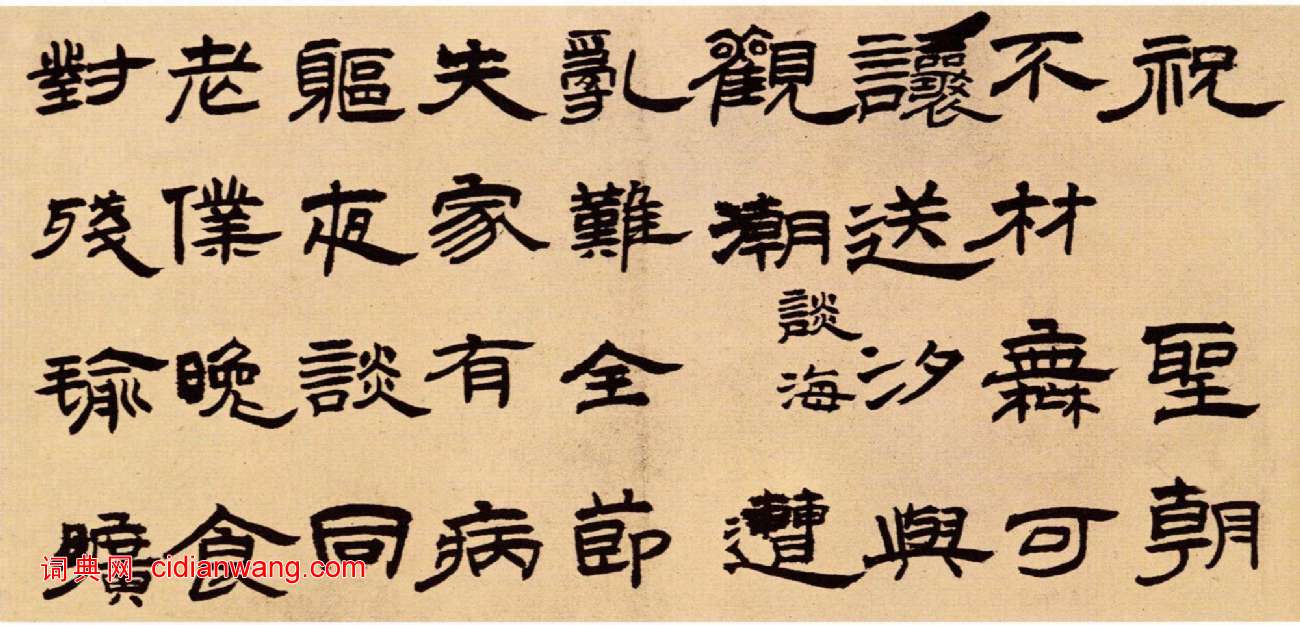 祝聖朝
不材無可
讓送汐與
觀潮談海遭
亂難全節
失家有病
軀夜談同
老僕晚食
對殘瑜曠
词典网 cidianwang.com